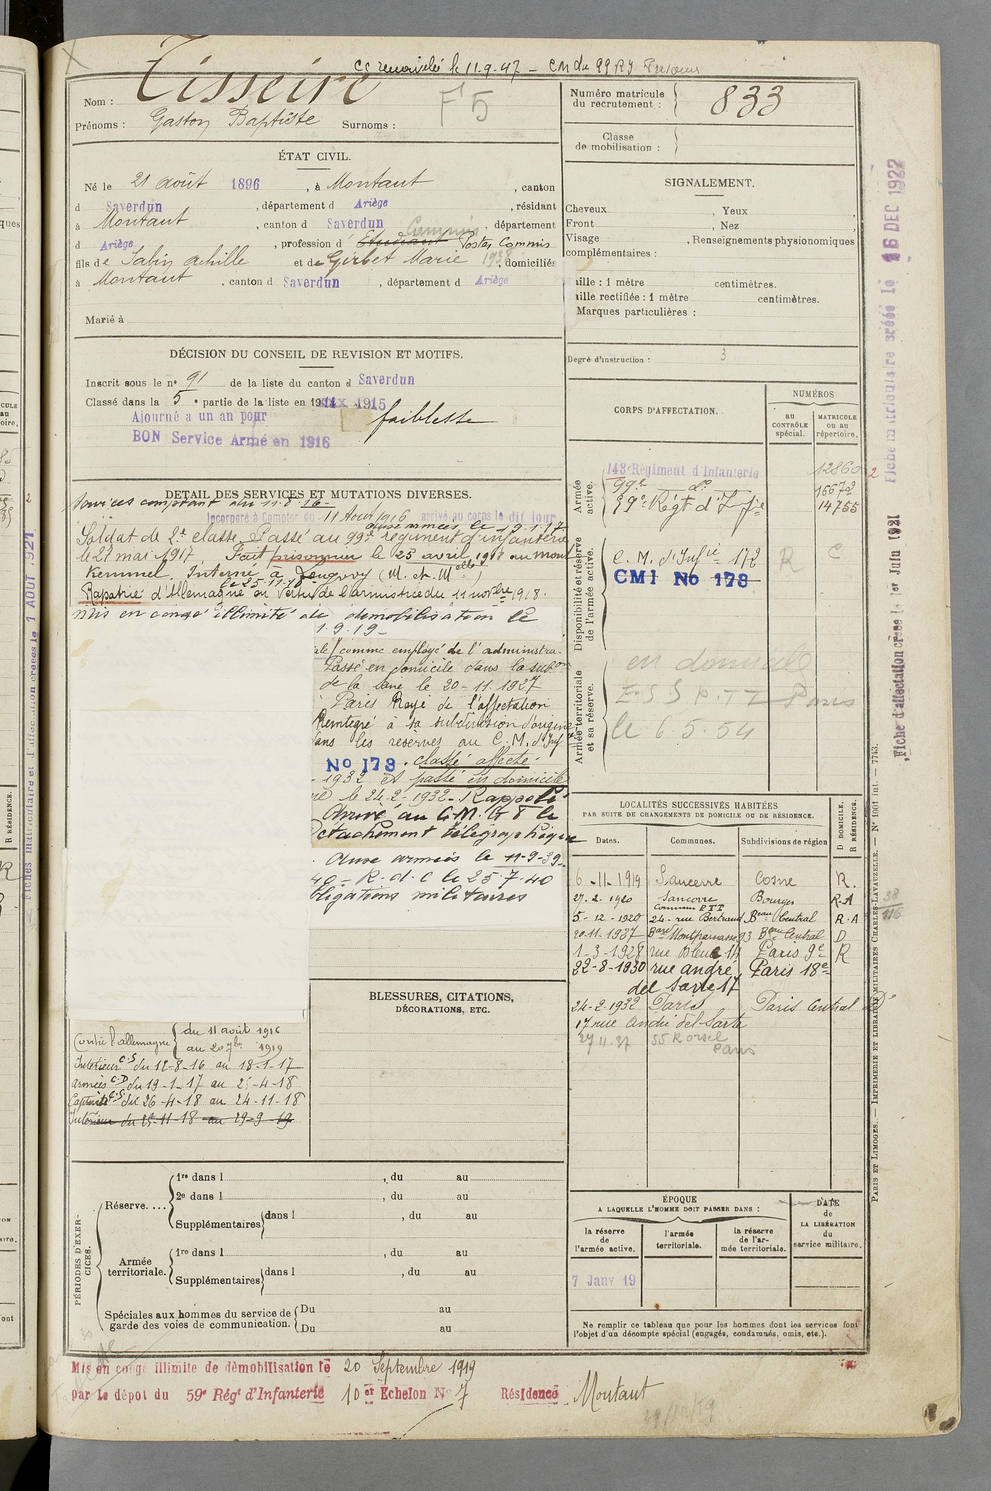 CC renouvelé le 11-9-47 - CM du 99 RI
Nom : Tisseire
F 5
Prénoms : Gaston Baptiste Surnoms :
Numéro matricule du recrutement : 833
Classe de mobilisation :
ÉTAT CIVIL.
Né le 21 août 1896, à Montaut, canton
d Saverdun, département d Ariège, résidant
à Montaut, canton d Saverdun, département
d Ariège, profession d' Etudiant Postes Commis
fils de Sabin Achille et de Girbet Marie 1938 domiciliés
à Montaut, canton d Saverdun, département d Ariège
Marié à
SIGNALEMENT.
Cheveux , Yeux
Front , Nez
Visage , Renseignements physionomiques
complémentaires :
aille : 1 mètre centimètres.
aille rectifiée : 1 mètre centimètres.
Marques particulières :
Degré d'instruction : 3
DÉCISION DU CONSEIL DE REVISION ET MOTIFS.
Inscrit sous le n° 91 de la liste du canton d Saverdun
Classé dans la 5e partie de la liste en 1915
Ajourné a un an pour faiblesse
BON Service Armé en 1916
DÉTAIL DES SERVICES ET MUTATIONS DIVERSES.
Services comptant du 11-8-16-
Incorporé à Compter du 11 Août 1916 arrivé au corps le dit jour
aux armées le 19.1.17
Soldat de 2e classe. Passé au 99e régiment d'infanterie
le 27 mai 1917 Fait prisonnier le 25 avril 1918 au mont
Kemmel. Interné à Longwy (M. et Melle)
le 25-11-18
Rapatrié d'Allemagne en vertu de l'armistice du 11 novbre 1918.
mis en congé illimité de démobilisation le
1.9.19-
ale) comme employé de l'administra-
Passé en domicile dans la subon
de la Seine le 20-11-1927
Paris Rayé de l'affectation
Réintégré à sa subdivision d'origine
dans les réserves au C.M. d'Inf
No 178. classe affecté.
- 1932 et passé en domicile
le 24-2-1932 - Rappelé
Arrivé au C.M. G 8 le
étachement télégraphique
. Aux armées le 11-9-39-
40 - R.d.C le 25-7-40
bligations militaires
Contre l'allemagne du 11 août 1916
au 20 7bre 1919
Intérieur C-S du 12-8-16 au 18-1-17
Armées C-D du 19-1-17 au 25-4-18
Captivité C-S du 26-4-18 au 24-11-18
Intérieur du 25-11-18 au 29-9-19
BLESSURES, CITATIONS,
DÉCORATIONS, ETC.
CORPS D'AFFECTATION.
NUMÉROS
au CONTRÔLE spécial.
MATRICULE ou au répertoire.
Armée active.
143e Régiment d'Infanterie 12860
99e do 15672
59e Régt d'Infie 14755
Disponibilité et réserve de l'armée active.
C. M. d'Infie 178 R C
CMI No 178
Armée territoriale et sa réserve.
en domicile
Paris
le 6.5.54
LOCALITÉS SUCCESSIVES HABITÉES
PAR SUITE DE CHANGEMENTS DE DOMICILE OU DE RÉSIDENCE.
Dates. Communes. Subdivisions de région
D DOMICILE.
R RÉSIDENCE.
6-11-1919 Sancerre Cosne R.
27-2-1920 Sancerre Bourges R.A
Commis PTT
5-12-1920 24- rue Bertrand Beau Central R.A
20-11-1927 Bard Montparnasse 93 Beau Central D
1-3-1928 rue Bleue 14 Paris 9e R
22-8-1930 rue andre Paris 18e
del Sarte 17
24-2-1932 Paris Paris Central D
17 rue André del Sarte
27-11-37 55 R Orsel
Paris
38
116
PÉRIODES D'EXERCICES.
Réserve....
1re dans l , du au
2e dans l , du au
Supplémentaires dans l , du au
Armée territoriale.
1re dans l , du au
Supplémentaires dans l , du au
Spéciales aux hommes du service de garde des voies de communication.
Du au
Du au
ÉPOQUE
A LAQUELLE L'HOMME DOIT PASSER DANS :
la réserve de l'armée active.
l'armée territoriale.
la réserve de l'armée territoriale.
DATE de LA LIBÉRATION du service militaire.
7 Janv 19
Ne remplir ce tableau que pour les hommes dont les services font
l'objet d'un décompte spécial (engagés, condamnés, omis, etc.).
Mis en congé illimité de démobilisation le 20 Septembre 1919
par le dépôt du 59e Régt d'Infanterie 10er Echelon No 7 Résidence Montaut
Fiche matriculaire créée le 16 DEC 1922
Fiche d'affectation créée le 1er Juin 1931
PARIS ET LIMOGES. — IMPRIMERIE ET LIBRAIRIE MILITAIRES CHARLES-LAVAUZELLE. — N° 1001 int. — 7743.